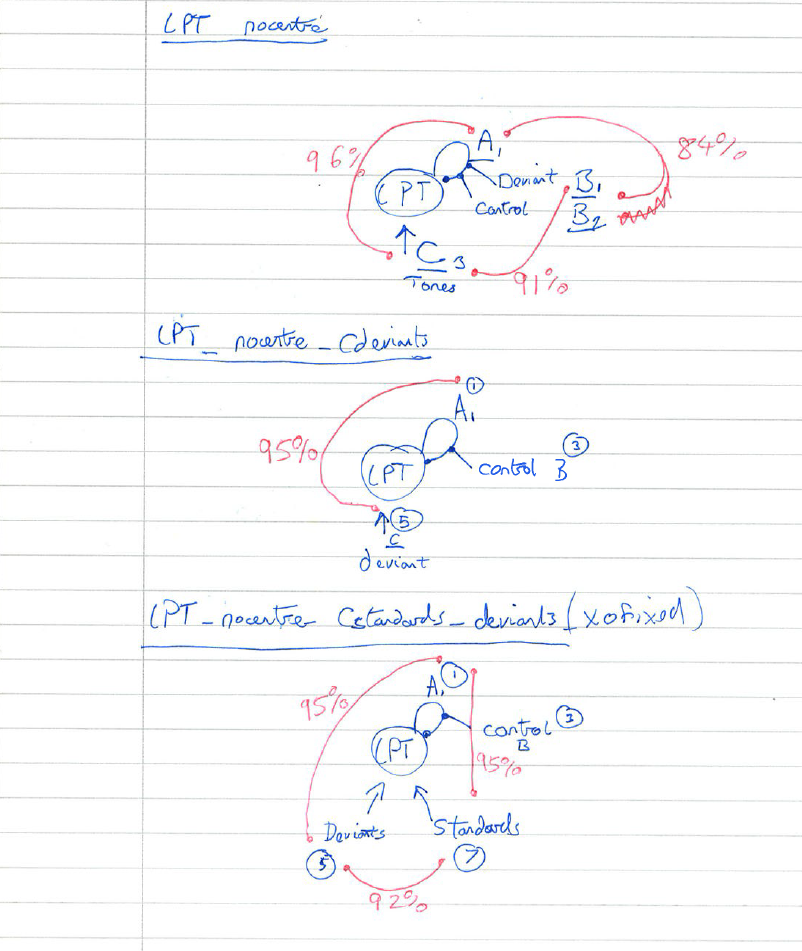 LPT nocentre
A1
84%
96%
LPT
Deviant
B1
Control
B2
C 3
Tones
91%
LPT_nocentre_Cdeviants
①
A1
95%
③
LPT
control B
⑤
C
deviant
LPT_nocentre Cstandards_deviants (xofixed)
A1 ①
95%
control ③
B
LPT
95%
Deviants
Standards
⑤
⑦
92%